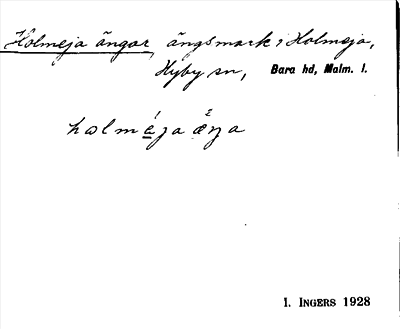 Holmeja ängar, ängsmark i Holmeja,
Hyby sn, Bara hd, Malm. l.
holmè̱ja æ̀ŋa
I. INGERS 1928